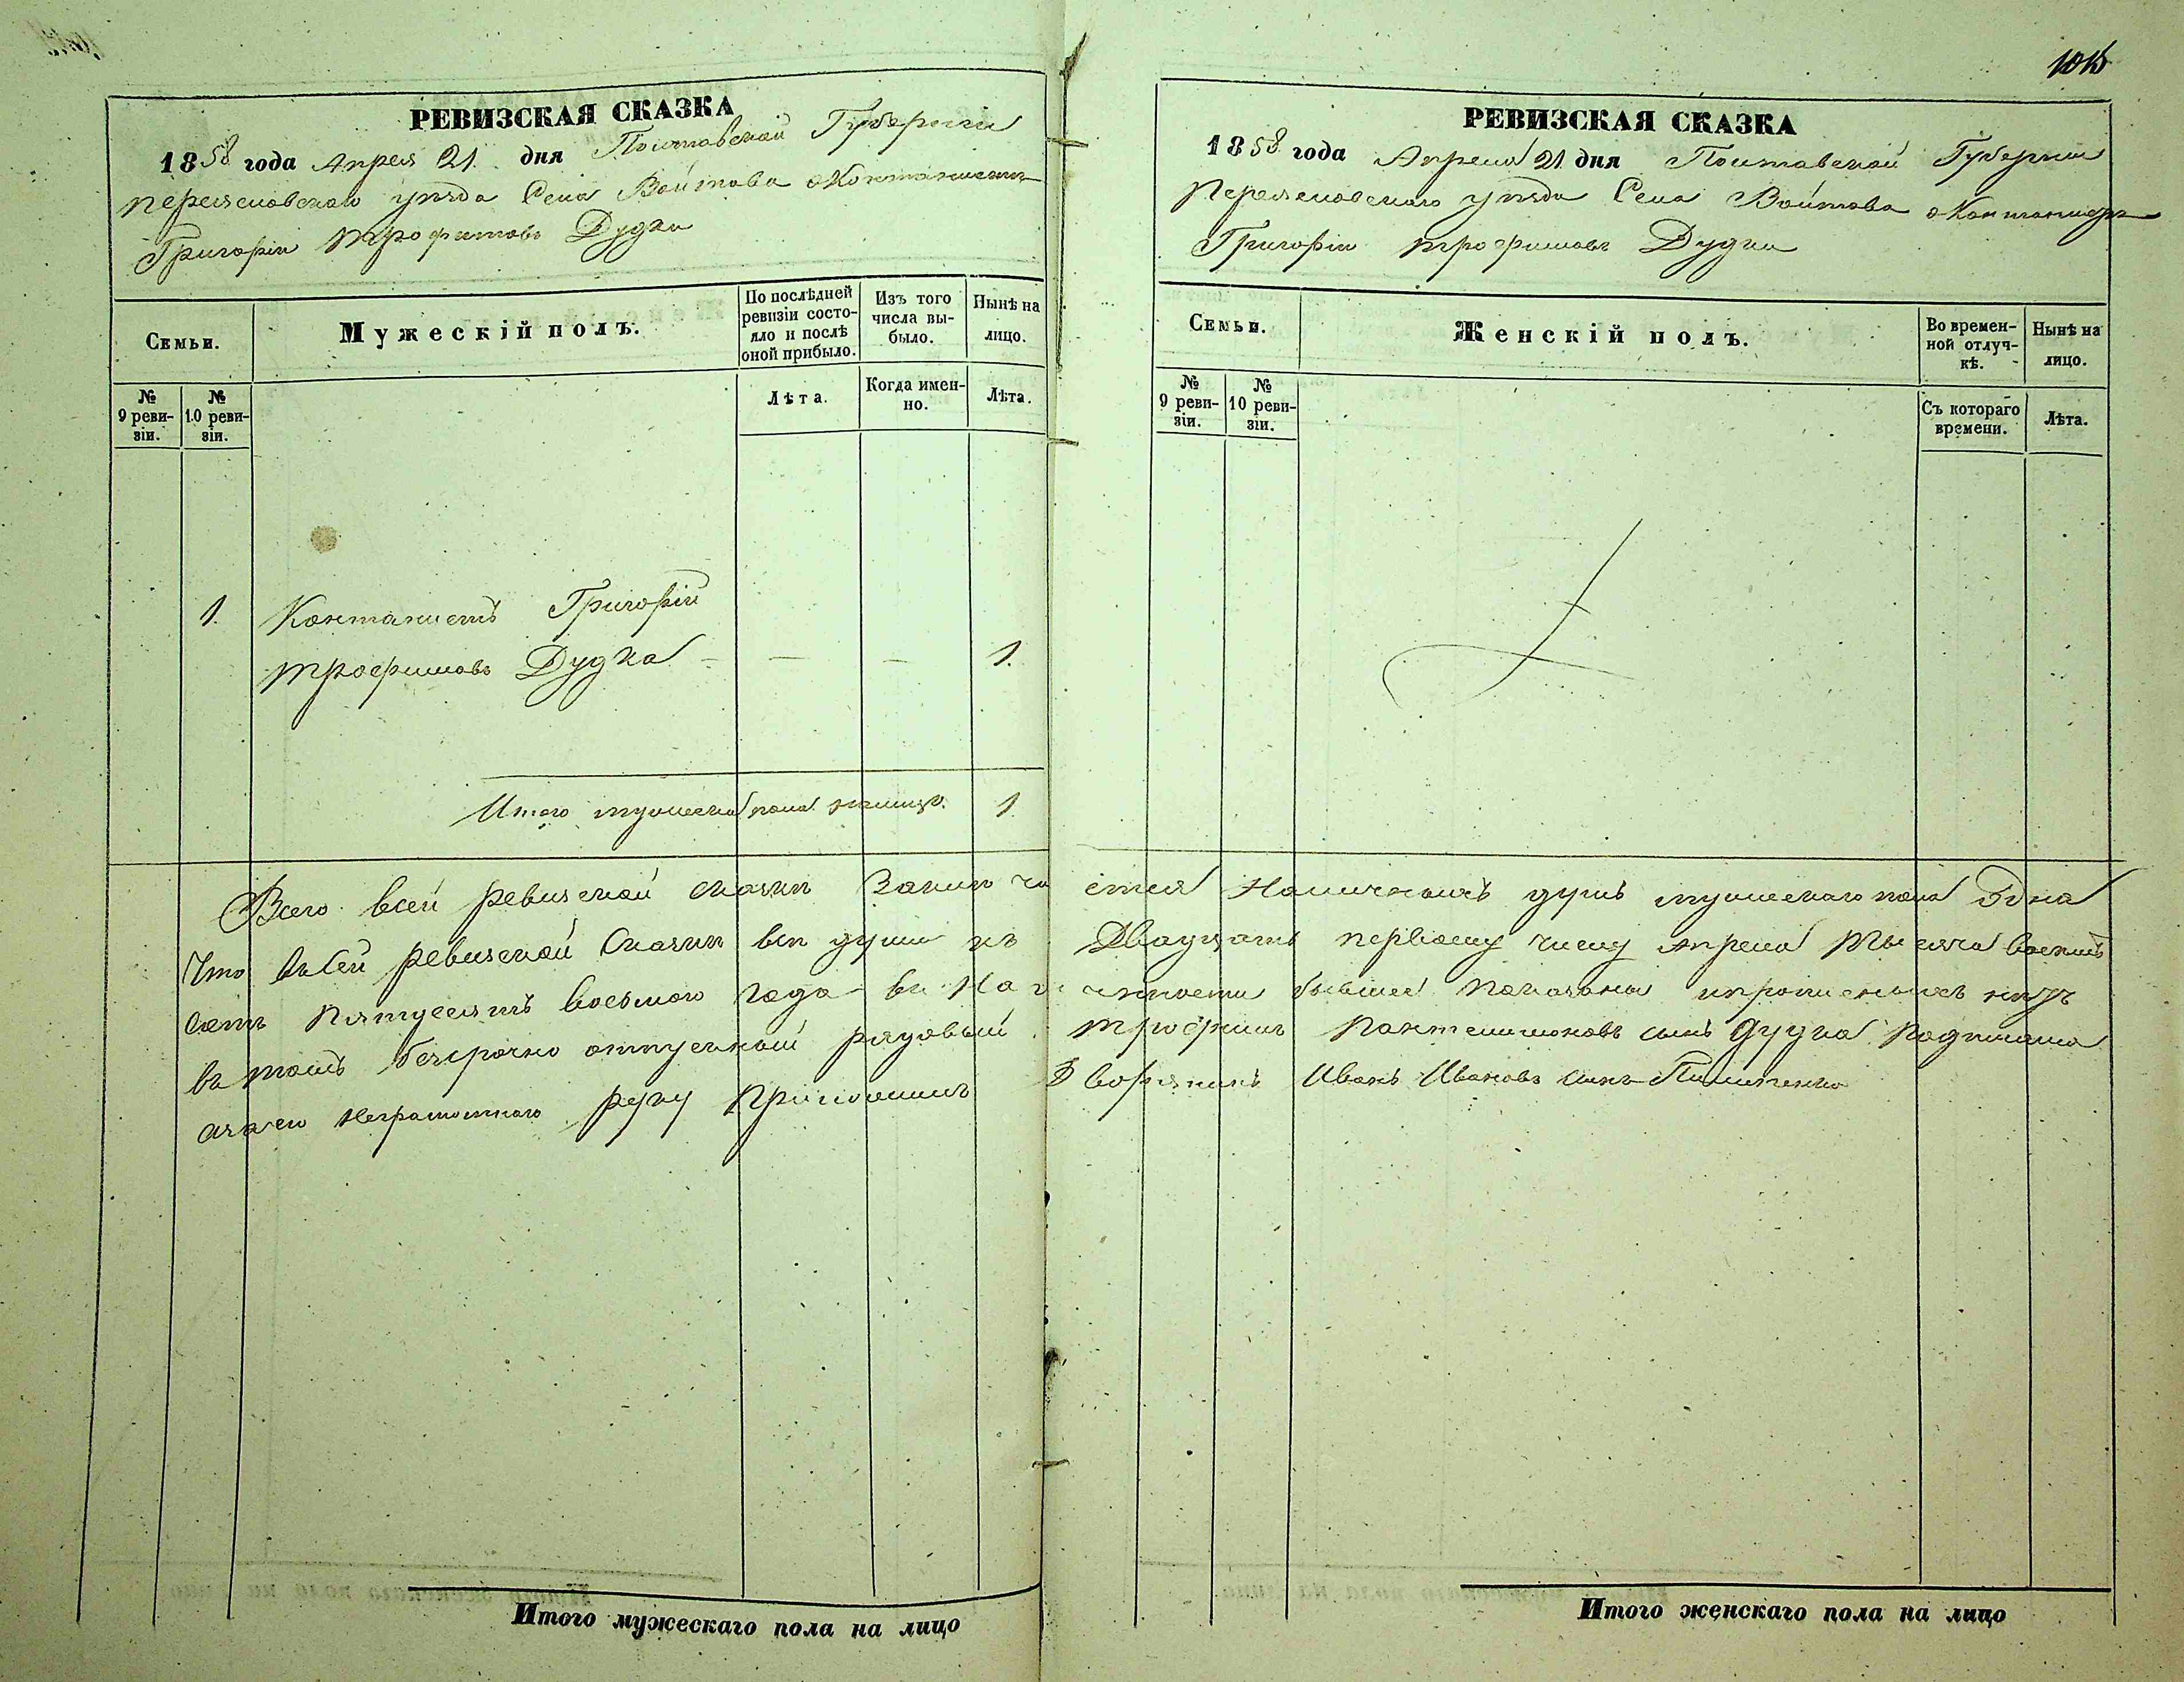 РЕВИЗСКАЯ СКАЗКА
1858 года Апреля 21 дня Полтавской Губернии
Переяславскаго уѣзда Села Войтова о Контонистѣ
Григоріи Трофимовѣ Дудки
Семьи.
Мужескій полъ.
По послѣдней ревизіи состо-
яло и послѣ оной прибыло.
Изъ того числа вы-
было.
Нынѣ на лицо.
№ 9 реви-
зіи.
№ 10 реви-
зіи.
Лѣта.
Когда имен-
но.
Лѣта.
1. Контонистъ Григорій
Трофимовъ Дудка - — — 1.
Итого мужеска пола налицо. 1
Итого мужескаго пола на лицо
1015
РЕВИЗСКАЯ СКАЗКА
1858 года Апреля 21 дня Полтавской Губернии
Переяславскаго уѣзда Села Войтова о Контонистѣ
Григоріи Трофимовѣ Дудки
Семьи.
Женскій полъ.
Во времен-
ной отлуч-
кѣ.
Нынѣ на лицо.
№ 9 реви-
зіи.
№ 10 реви-
зіи.
Съ котораго времени.
Лѣта.
Всего всей ревизской сказки наличныхъ душъ мужескаго пола Одна
Что въ сей ревизской Сказки всѣ души къ Двадцать первому числу апреля тысяча восемъ
сотъ пятдесятъ восьмого года въ наличности бывшее показаны
въ томъ безсрочно отпускный рядовый Трофимъ Пантелимоновъ сынъ Дудка
неграмотнаго руку приложилъ Дворянинъ Иванъ Ивановъ сынъ
Итого женскаго пола на лицо